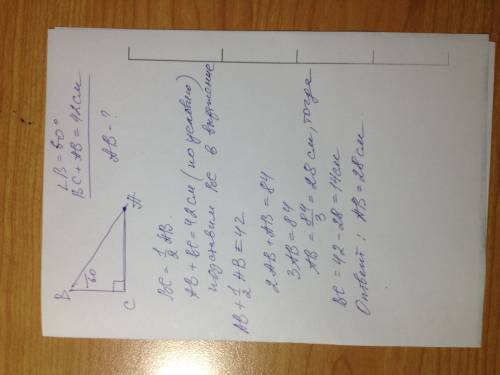 ∠B = 60°
BC + AB = 42 см
AB - ?
B
60
C
A
BC = 1/2 AB.
AB + BC = 42 см (по условию)
подставим BC в выражение
AB + 1/2 AB = 42
2AB + AB = 84
3AB = 84
AB = 84/3 = 28 см, тогда
BC = 42 - 28 = 14 см
Ответ: AB = 28 см.